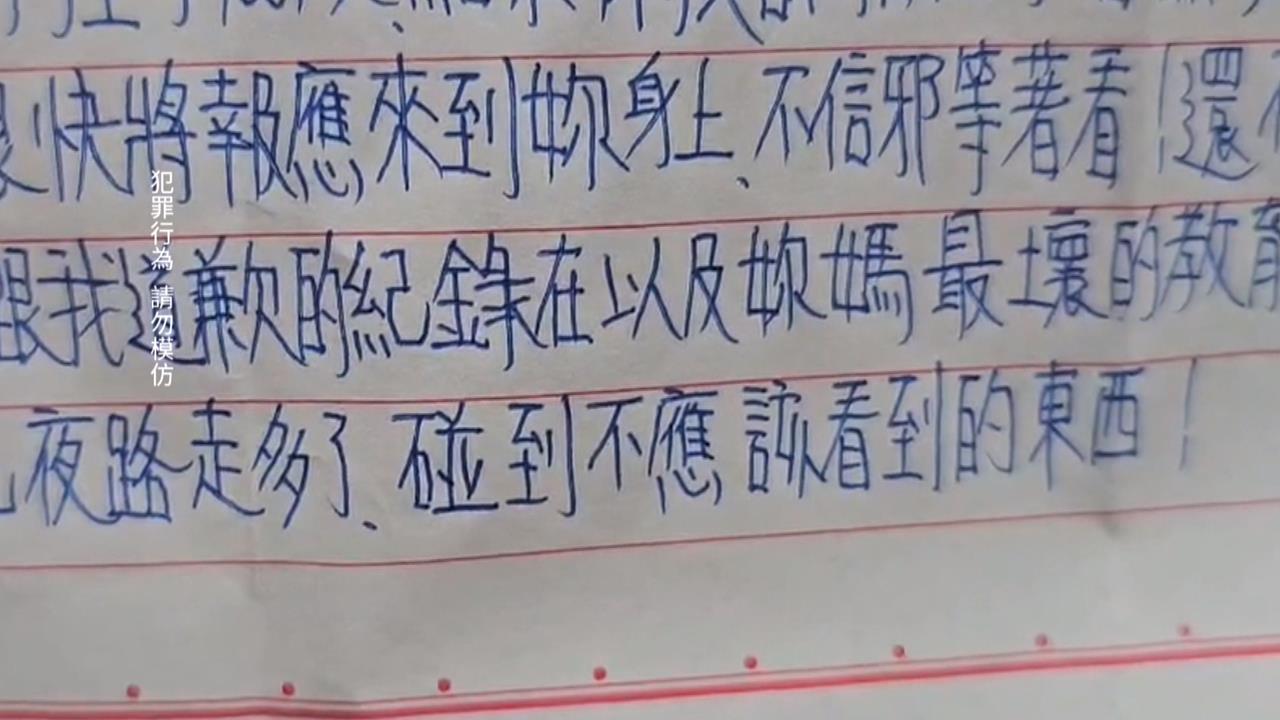 快將報應來到妳身上、不信邪等著看!還
跟我道歉的紀錄在以及妳媽最壞的教育
夜路走多了、碰到不應該看到的東西!
犯罪行為 請勿模仿